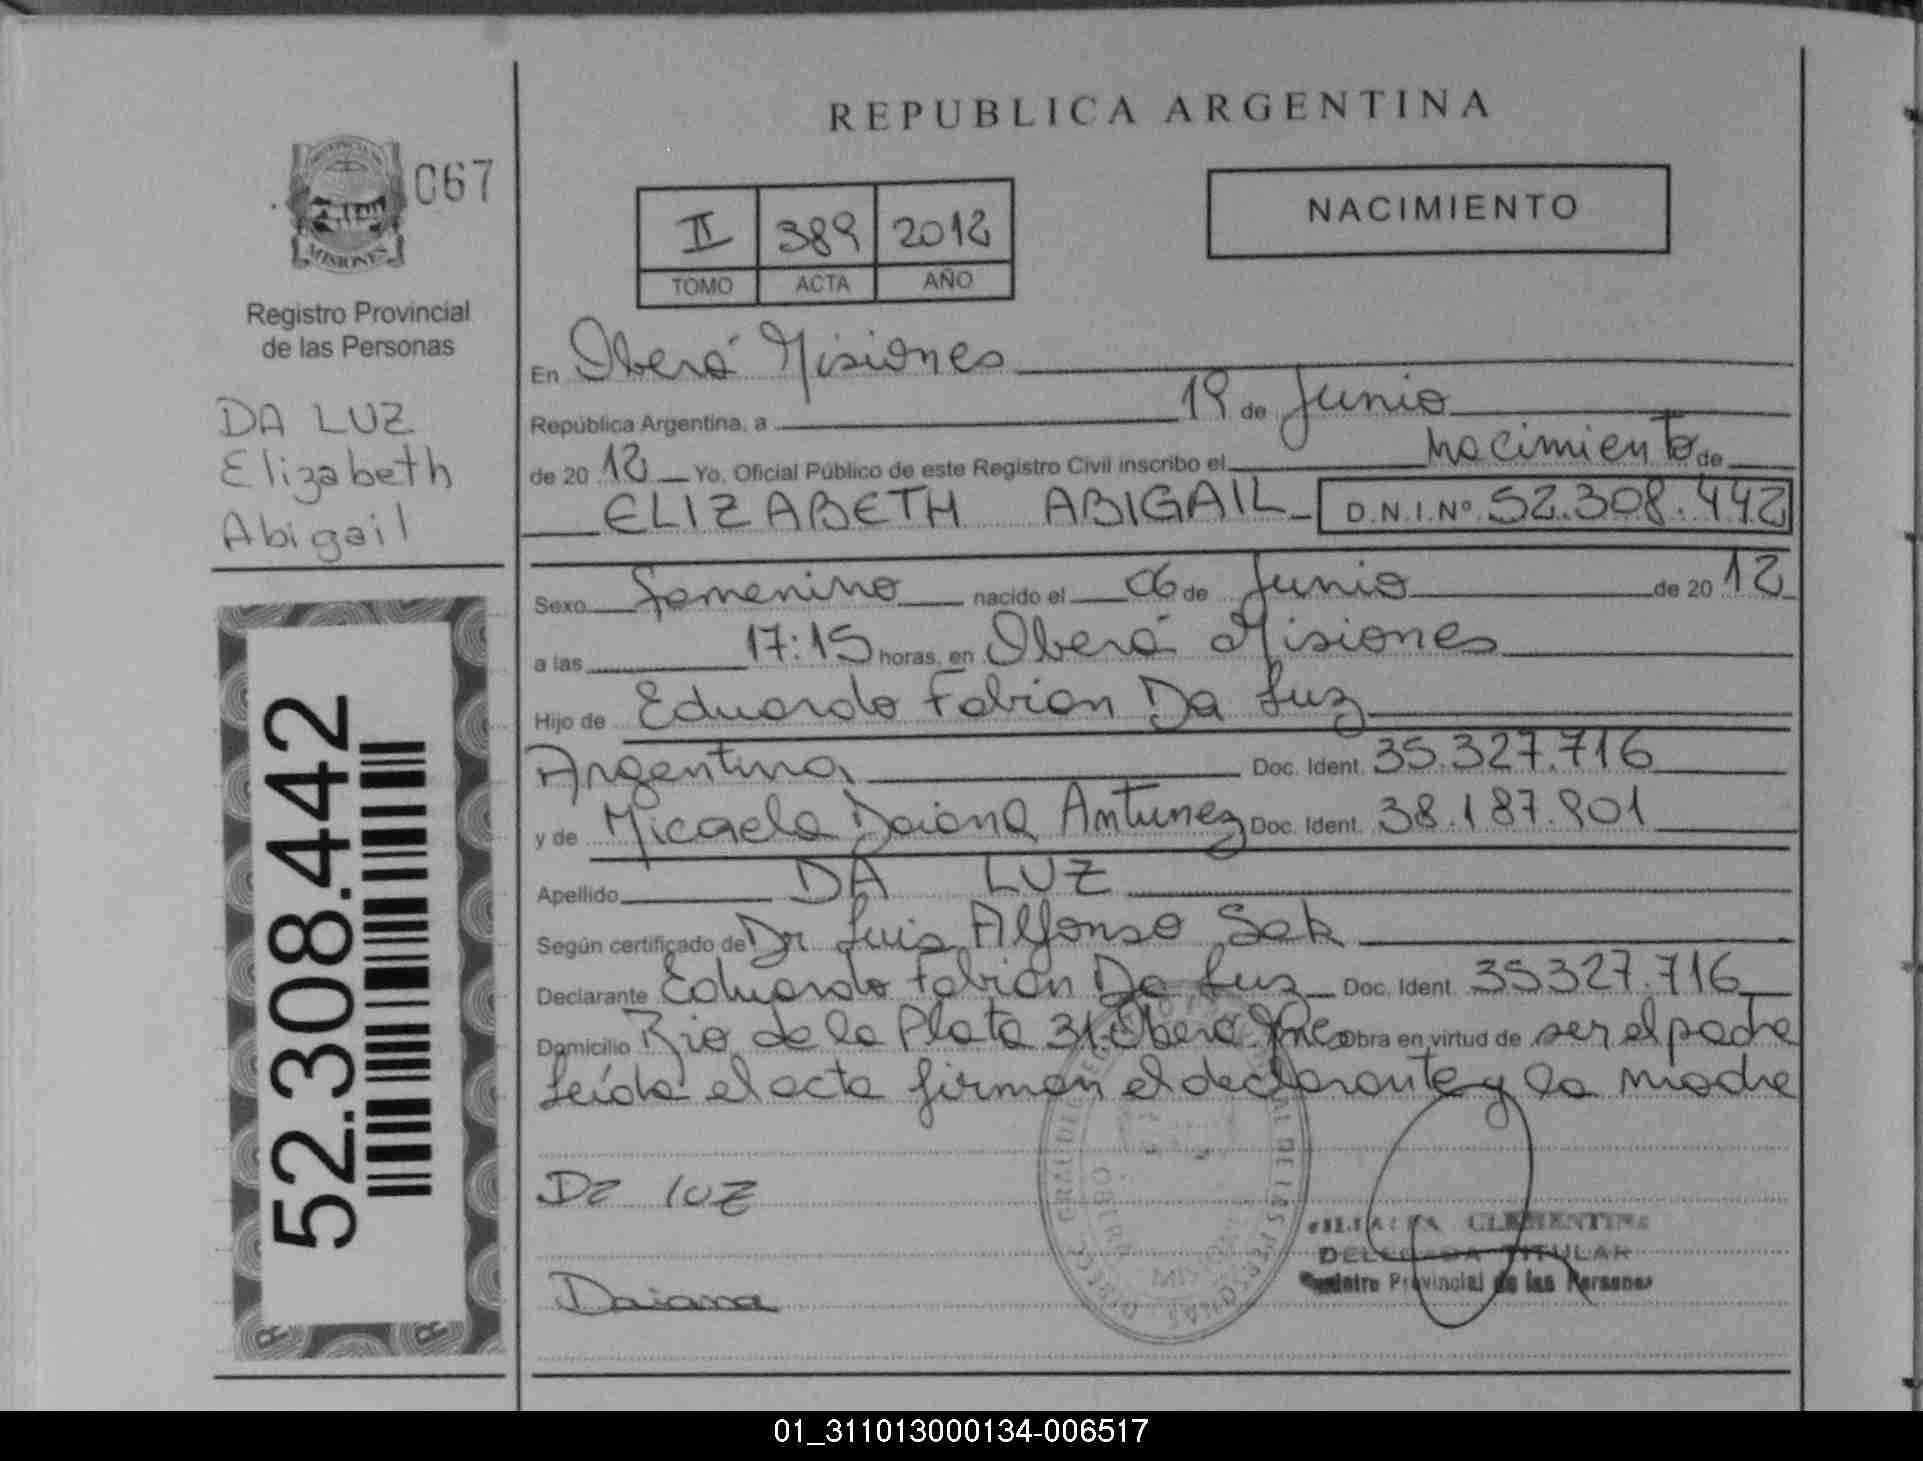 REPUBLICA ARGENTINA
067
MISIONES
Registro Provincial
de las Personas
DA LUZ
Elizabeth
Abigail
52.308.442
II 389 2012
TOMO ACTA AÑO
NACIMIENTO
En Oberá Misiones
República Argentina, a 19 de Junio
de 20 12 Yo, Oficial Público de este Registro Civil inscribo el nacimiento de
ELIZABETH ABIGAIL D.N.I.Nº 52.308.442
Sexo femenino nacido el 06 de Junio de 20 12
a las 17:15 horas, en Oberá Misiones
Hijo de Eduardo Fabian Da Luz
Argentina Doc. Ident. 35.327.716
y de Micaela Daiana Antunez Doc. Ident. 38.187.901
Apellido DA LUZ
Según certificado de Dr Luis Alfonso Sek
Declarante Eduardo Fabián Da Luz Doc. Ident. 35327.716
Domicilio Rio de la Plata 31 Oberá Mnes Obra en virtud de ser el padre
Leída el acta firman el declarante y la madre
Da luz
CLEMENTINA
DELEGADA TITULAR
Registro Provincial de las Personas
Daiana
OBERA
MISIONES
01_311013000134-006517